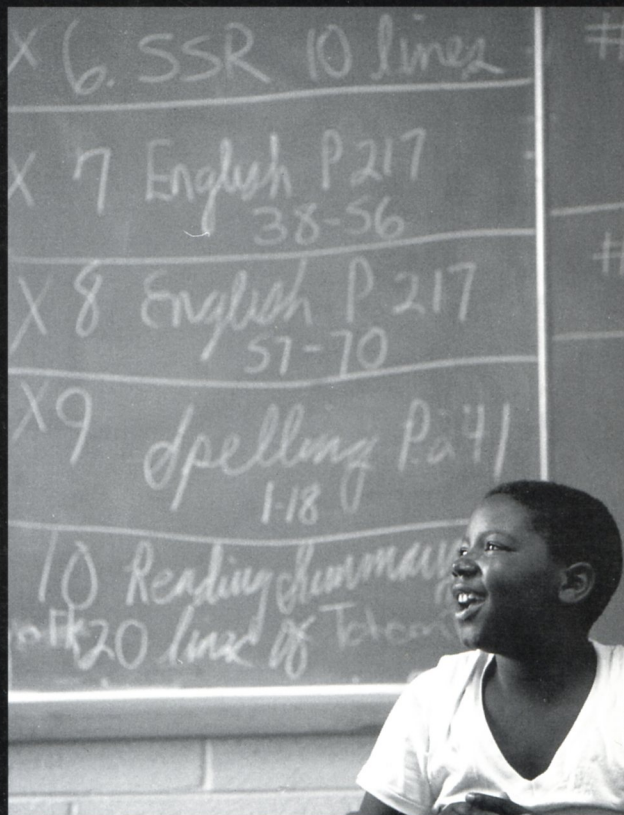 X 6. SSR 10 lines
X 7 English P 217
38-56
X 8 English P 217
57-70
X 9 Spelling
1-18
10 Reading Summary
20 lines of Totem
#
#